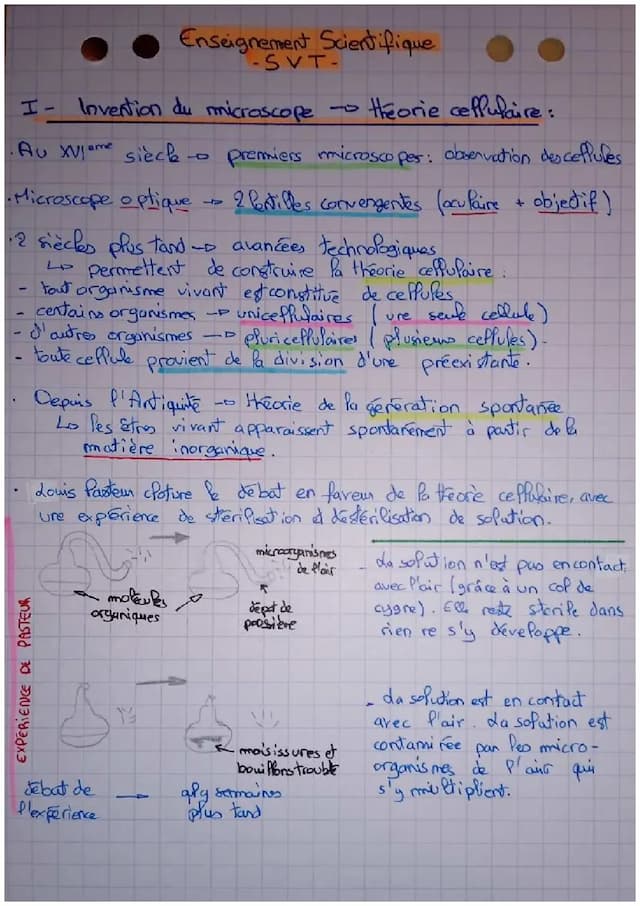 Enseignement Scientifique
- SVT -
I - Invention du microscope → théorie cellulaire :
. Au XVIème siècle → premiers microscopes : observation des cellules
. Microscope optique → 2 lentilles convergentes (oculaire + objectif)
. 2 siècles plus tard → avancées technologiques
↳ permettent de construire la théorie cellulaire :
- tout organisme vivant est constitué de cellules
- certains organismes → unicellulaires (une seule cellule)
- d'autres organismes → pluricellulaires (plusieurs cellules).
- toute cellule provient de la division d'une préexistante.
. Depuis l'Antiquité → théorie de la génération spontanée
↳ les êtres vivant apparaissent spontanément à partir de la
matière inorganique.
. Louis Pasteur cloture le débat en faveur de la théorie cellulaire, avec
une expérience de stérilisation et déstérilisation de solution.
EXPÉRIENCE DE PASTEUR
microorganismes
de l'air
molécules
organiques
dépot de
poussière
- La solution n'est pas en contact
avec l'air (grâce à un col de
cygne). Elle reste stérile dans
rien ne s'y développe.
moisissures et
bouillons trouble
- La solution est en contact
avec l'air. La solution est
contaminée par les micro-
organismes de l'air qui
s'y multiplient.
début de
l'expérience
→ qlq semaines
plus tard